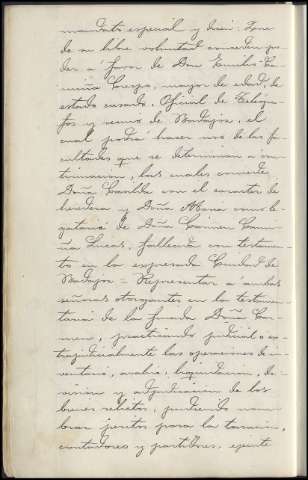 mandato especial y dicen: Que
de su libre voluntad conceden po-
der á favor de Don Emilio Ca-
mayor de edad, de
estado casado, Oficial de Telégra-
fos y vecino de Badajoz, el
cual podrá hacer uso de las fa-
cultades que se determinan a con-
tinuacion, las cuales concede
Doña con el caracter de
heredera y Doña Maria como le-
gataria de Doña Carmen
fallecida con testamen-
to en la expresada Ciudad de
Badajoz = Representar a ambas
señoras otorgantes en la testamen-
taria de la finada Doña Car-
men, practicando judicial o ex-
trajudicialmente las operaciones de in-
ventario, avalúo, liquidacion, di-
vision y adjudicacion de los
bienes relictos, pudiendo nom-
brar peritos para la tasacion,
contadores y partidores,